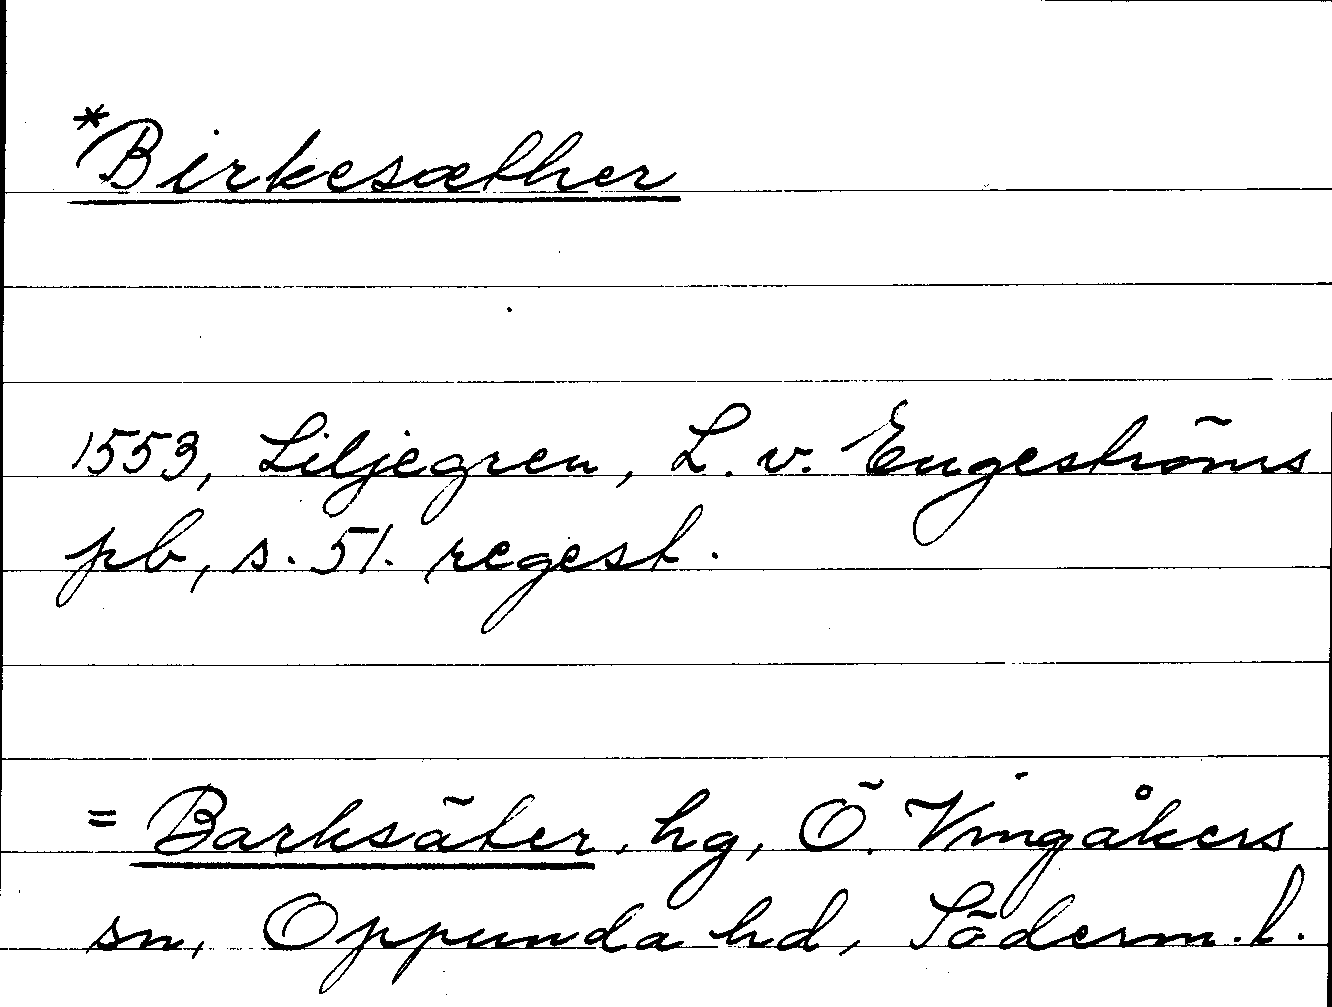 *Birkesæther
1553, Liljegren, L. v. Engeströms
pb, s. 51. regest.
= Barksäter, hg, Ö. Vingåkers
sn, Oppunda hd, Söderm. l.